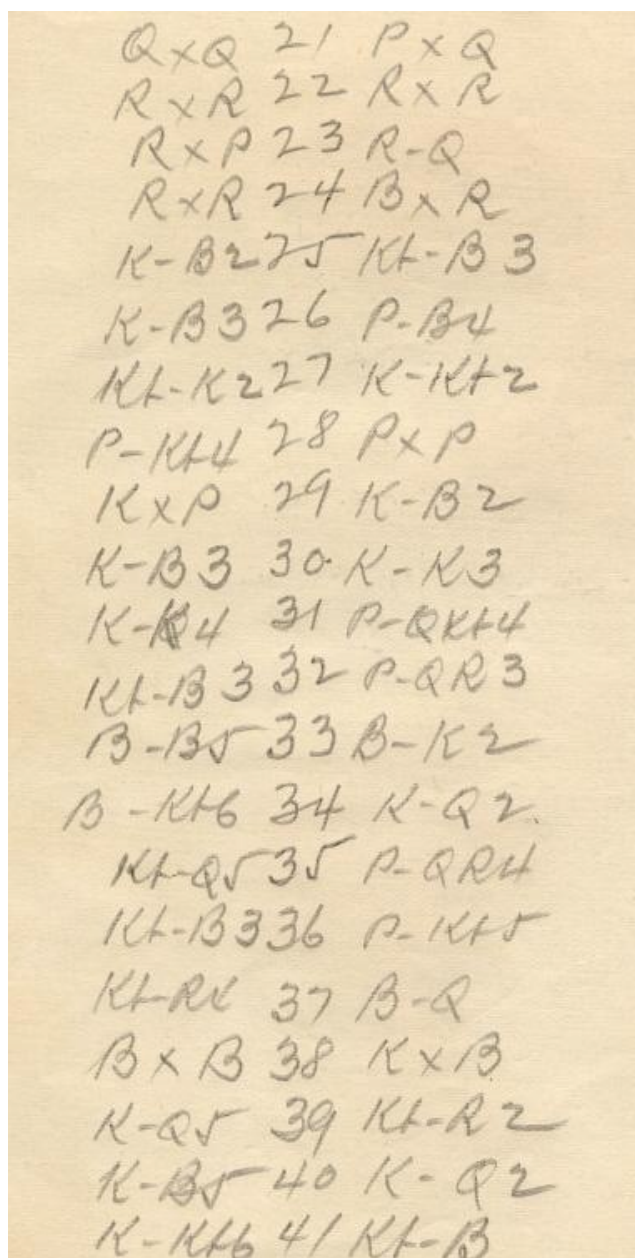 QxQ 21 PxQ
RxR 22 RxR
RxP 23 R-Q
RxR 24 BxR
K-B2 25 Kt-B3
K-B3 26 P-B4
Kt-K2 27 K-Kt2
P-Kt4 28 PxP
KxP 29 K-B2
K-B3 30 K-K3
K-K4 31 P-QKt4
Kt-B3 32 P-QR3
B-B5 33 B-K2
B-Kt6 34 K-Q2
Kt-Q5 35 P-QR4
Kt-B3 36 P-Kt5
Kt-R4 37 B-Q
BxB 38 KxB
K-Q5 39 Kt-R2
K-B5 40 K-Q2
K-Kt6 41 Kt-B